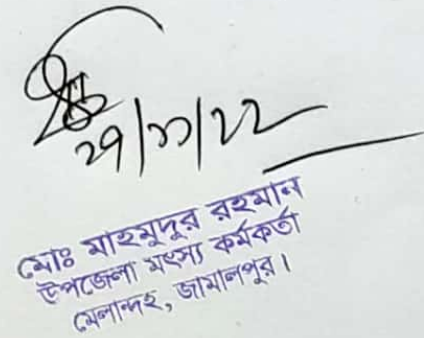 ২৭/১১/২২
মোঃ মাহমুদুর রহমান
উপজেলা মৎস্য কর্মকর্তা
মেলান্দহ, জামালপুর।